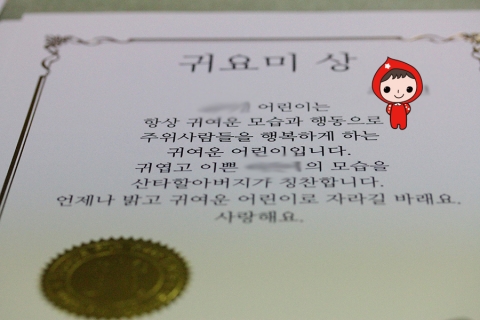 귀요미 상
어린이는
항상 귀여운 모습과 행동으로
주위사람들을 행복하게 하는
귀여운 어린이입니다.
귀엽고 이쁜 의 모습을
산타할아버지가 칭찬합니다.
언제나 밝고 귀여운 어린이로 자라길 바래요.
사랑해요.